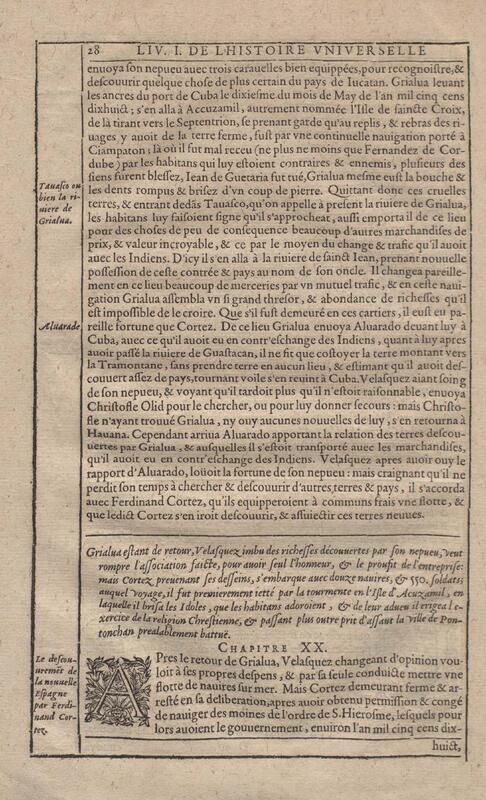 28 LIV. I. DE L'HISTOIRE VNIVERSELLE
enuoya son nepueu auec trois carauelles bien equippées, pour recognoistre, &
descouurir quelque chose de plus certain du pays de Iucatan. Grialua leuant
les ancres du port de Cuba le dixiesme du mois de May de l'an mil cinq cens
dixhuict; s'en alla à Accuzamil, autrement nommée l'Isle de saincte Croix,
de là tirant vers le Septentrion, se prenant garde qu'au replis, & rebras des ri-
uages y auoit de la terre ferme, fust par vne continuelle nauigation porté à
Ciampaton; là où il fut mal receu (ne plus ne moins que Fernandez de Cor-
dube) par les habitans qui luy estoient contraires & ennemis, plusieurs des
siens furent blessez, Iean de Guetaria fut tué, Grialua mesme eust la bouche &
les dents rompus & brisez d'vn coup de pierre. Quittant donc ces cruelles
terres, & entrant dedãs Tauasco, qu'on appelle à present la riuiere de Grialua,
les habitans luy faisoient signe qu'il s'approcheat, aussi emporta il de ce lieu
pour des choses de peu de consequence beaucoup d'autres marchandises de
prix, & valeur incroyable, & ce par le moyen du change & trafic qu'il auoit
auec les Indiens. D'icy il s'en alla à la riuiere de sainct Iean, prenant nouuelle
possession de ceste contrée & pays au nom de son oncle. Il changea pareille-
ment en ce lieu beaucoup de merceries par vn mutuel trafic, & en ceste naui-
gation Grialua assembla vn si grand thresor, & abondance de richesses qu'il
est impossible de le croire. Que s'il fust demeuré en ces cartiers, il eust eu pa-
reille fortune que Cortez. De ce lieu Grialua enuoya Aluarado deuant luy à
Cuba, auec ce qu'il auoit eu en contr'eschange des Indiens, quant à luy apres
auoir passé la riuiere de Guastacan, il ne fit que costoyer la terre montant vers
la Tramontane, sans prendre terre en aucun lieu, & estimant qu'il auoit des-
couuert assez de pays, tournant voile s'en reuint à Cuba. Velasquez aiant soing
de son nepueu, & voyant qu'il tardoit plus qu'il n'estoit raisonnable, enuoya
Christofle Olid pour le chercher, ou pour luy donner secours: mais Christo-
fle n'ayant trouué Grialua, ny ouy aucunes nouuelles de luy, s'en retourna à
Hauana. Cependant arriua Aluarado apportant la relation des terres descou-
uertes par Grialua, & ausquelles il s'estoit transporté auec les marchandises,
qu'il auoit eu en contr'eschange des Indiens. Velasquez apres auoir ouy le
rapport d'Aluarado, loüoit la fortune de son nepueu: mais craignant qu'il ne
perdit son temps à chercher & descouurir d'autres terres & pays, il s'accorda
auec Ferdinand Cortez, qu'ils equipperoient à communs frais vne flotte, &
que ledict Cortez s'en iroit descouurir, & assuiectir ces terres neuues.
Tauasco ou
bien la ri-
uiere de
Grialua.
Aluarade
Grialua estant de retour, Velasquez imbu des richesses découuertes par son nepueu, veut
rompre l'association faicte, pour auoir seul l'honneur, & le proufit de l'entreprise:
mais Cortez preuenant ses desseins, s'embarque auec douze nauires, & 550. soldats;
auquel voyage, il fut premierement ietté par la tourmente en l'Isle d'Acuzamil, en
laquelle il brisa les Idoles, que les habitans adoroient, & de leur adueu il erigea l'e-
xercice de la religion Chrestienne, & passant plus outre prit d'assaut la ville de Pon-
tonchan prealablement battuë.
CHAPITRE XX.
APres le retour de Grialua, Velasquez changeant d'opinion vou-
loit à ses propres despens, & par sa seule conduicte mettre vne
flotte de nauires sur mer. Mais Cortez demeurant ferme & ar-
resté en sa deliberation, apres auoir obtenu permission & congé
de nauiger des moines de l'ordre de S. Hierosme, lesquels pour
lors auoient le gouuernement, enuiron l'an mil cinq cens dix-
huict,
Le descou-
uremẽt de
la nouuelle
Espagne
par Ferdi-
nand Cor-
tez.